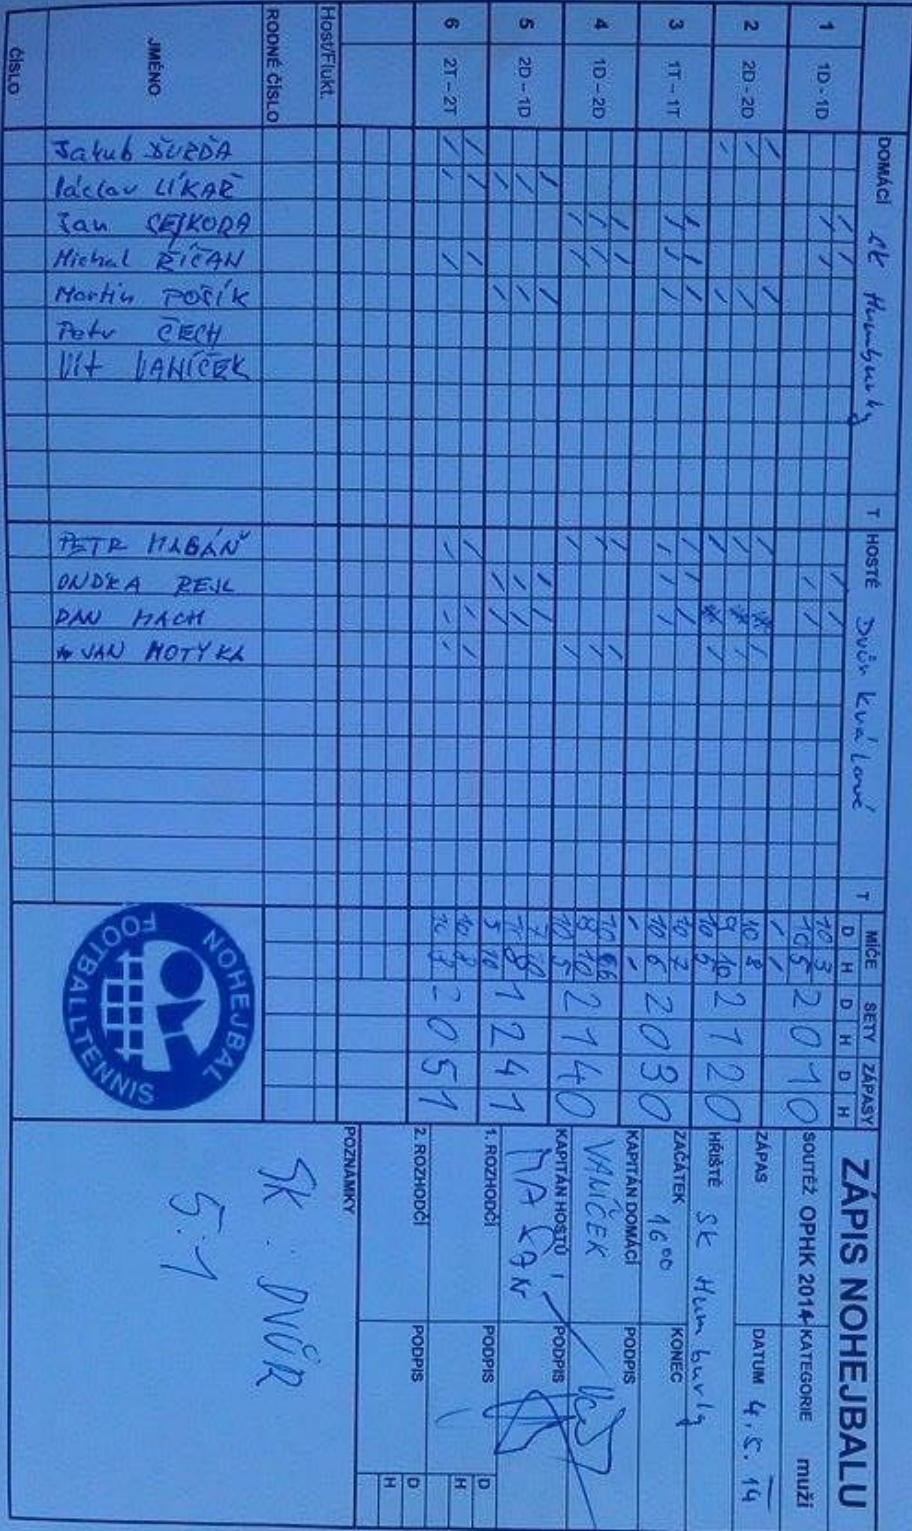 ZÁPIS NOHEJBALU
SOUTĚŽ OPHK 2014 KATEGORIE muži
ZÁPAS DATUM 4.5.14
HŘIŠTĚ SK Humburky
ZAČÁTEK 16 00 KONEC
KAPITÁN DOMÁCÍ PODPIS
VANÍČEK
KAPITÁN HOSTŮ PODPIS
1. ROZHODČÍ PODPIS
2. ROZHODČÍ PODPIS
D H
D H
POZNÁMKY
SK : DVŮR
5:1
DOMÁCÍ SK Humburky T HOSTÉ Dvůr Králové T MÍČE SETY ZÁPASY
D H D H D H
1 1D - 1D 10 3 10 5 2 0 1 0
2 2D - 2D 10 8 9 10 10 5 2 1 2 0
3 1T - 1T 10 7 10 6 2 0 3 0
4 1D - 2D 10 6 8 10 10 5 2 1 4 0
5 2D - 1D 1 2 4 1
6 2T - 2T 2 0 5 1
Host/Flukt.
RODNÉ ČÍSLO
JMÉNO
ČÍSLO
Jakub ŠURĎA
Václav LÍKAŘ
Jan SEJKORA
Michal ŘÍČAN
Martin POŘÍK
Petr ČECH
Vít VANÍČEK
PETR MAGÁŇ
ONDRA REJL
DAN MACH
JAN MOTYKA
NOHEJBAL
FOOTBALLTENNIS